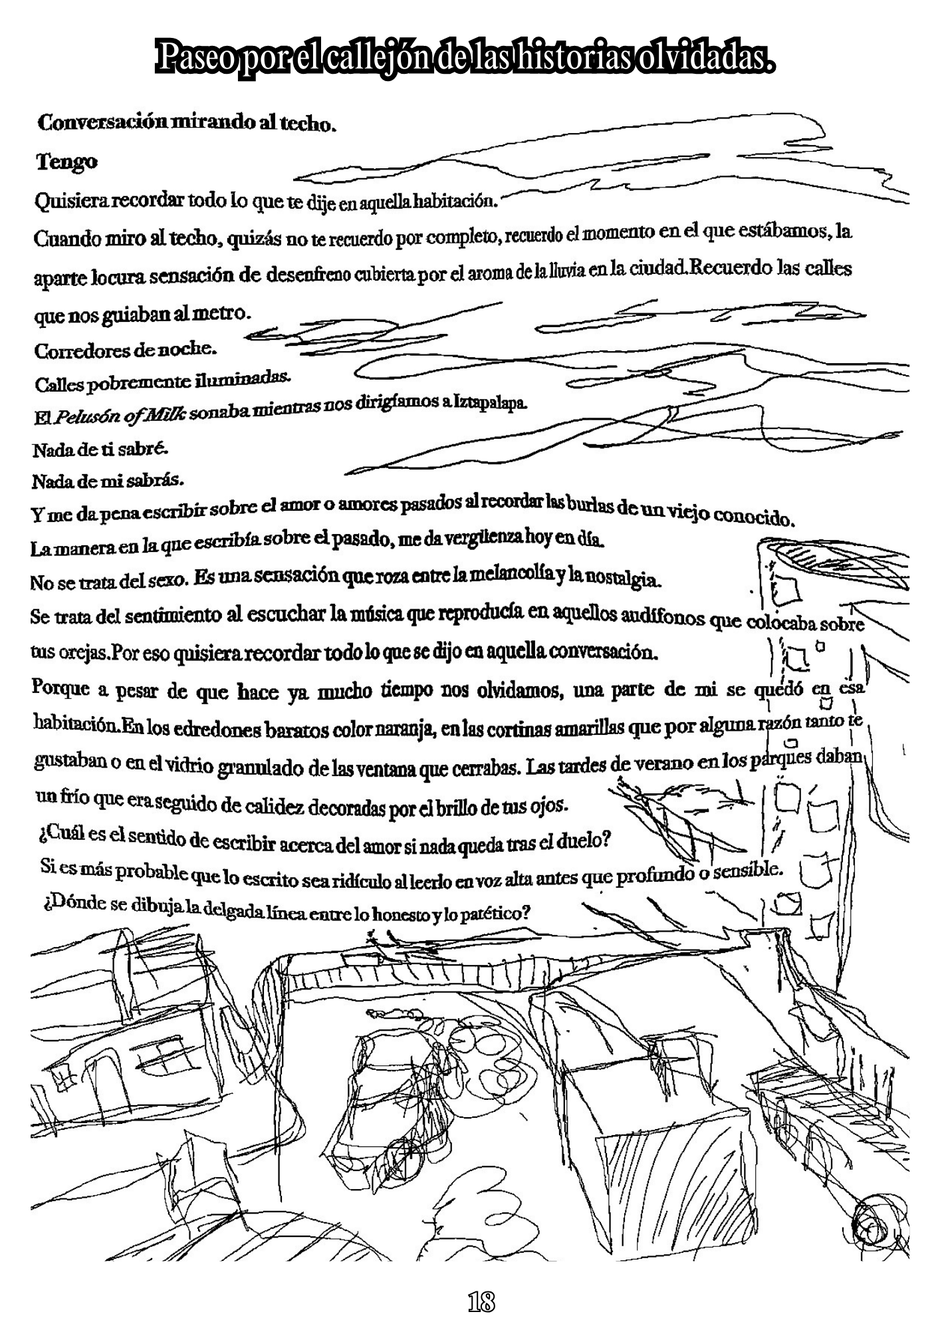 Paseo por el callejón de las historias olvidadas.
Conversación mirando al techo.
Tengo
Quisiera recordar todo lo que te dije en aquella habitación.
Cuando miro al techo, quizás no te recuerdo por completo, recuerdo el momento en el que estábamos, la
aparte locura sensación de desenfreno cubierta por el aroma de la lluvia en la ciudad.Recuerdo las calles
que nos guiaban al metro.
Corredores de noche.
Calles pobremente iluminadas.
El Pelusón of Milk sonaba mientras nos dirigíamos a Iztapalapa.
Nada de ti sabré.
Nada de mi sabrás.
Y me da pena escribir sobre el amor o amores pasados al recordar las burlas de un viejo conocido.
La manera en la que escribía sobre el pasado, me da vergüenza hoy en día.
No se trata del sexo. Es una sensación que roza entre la melancolía y la nostalgia.
Se trata del sentimiento al escuchar la música que reproducía en aquellos audífonos que colocaba sobre
tus orejas.Por eso quisiera recordar todo lo que se dijo en aquella conversación.
Porque a pesar de que hace ya mucho tiempo nos olvidamos, una parte de mi se quedó en esa
habitación.En los edredones baratos color naranja, en las cortinas amarillas que por alguna razón tanto te
gustaban o en el vidrio granulado de las ventana que cerrabas. Las tardes de verano en los parques daban
un frío que era seguido de calidez decoradas por el brillo de tus ojos.
¿Cuál es el sentido de escribir acerca del amor si nada queda tras el duelo?
Si es más probable que lo escrito sea ridículo al leerlo en voz alta antes que profundo o sensible.
¿Dónde se dibuja la delgada línea entre lo honesto y lo patético?
18